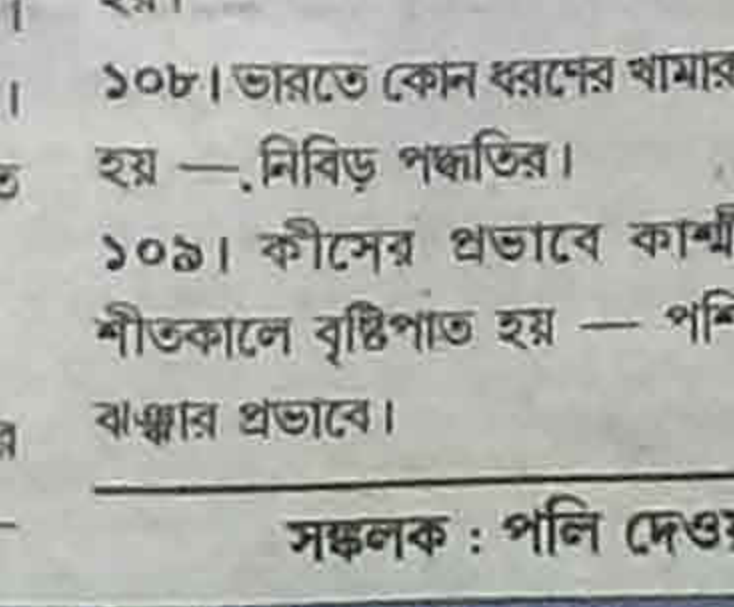 ১০৮। ভারতে কোন ধরণের খামার
হয় — নিবিড় পদ্ধতির।
১০৯। কীসের প্রভাবে
শীতকালে বৃষ্টিপাত হয় —
ঝঞ্ঝার প্রভাবে।
সঙ্কলক : পলি